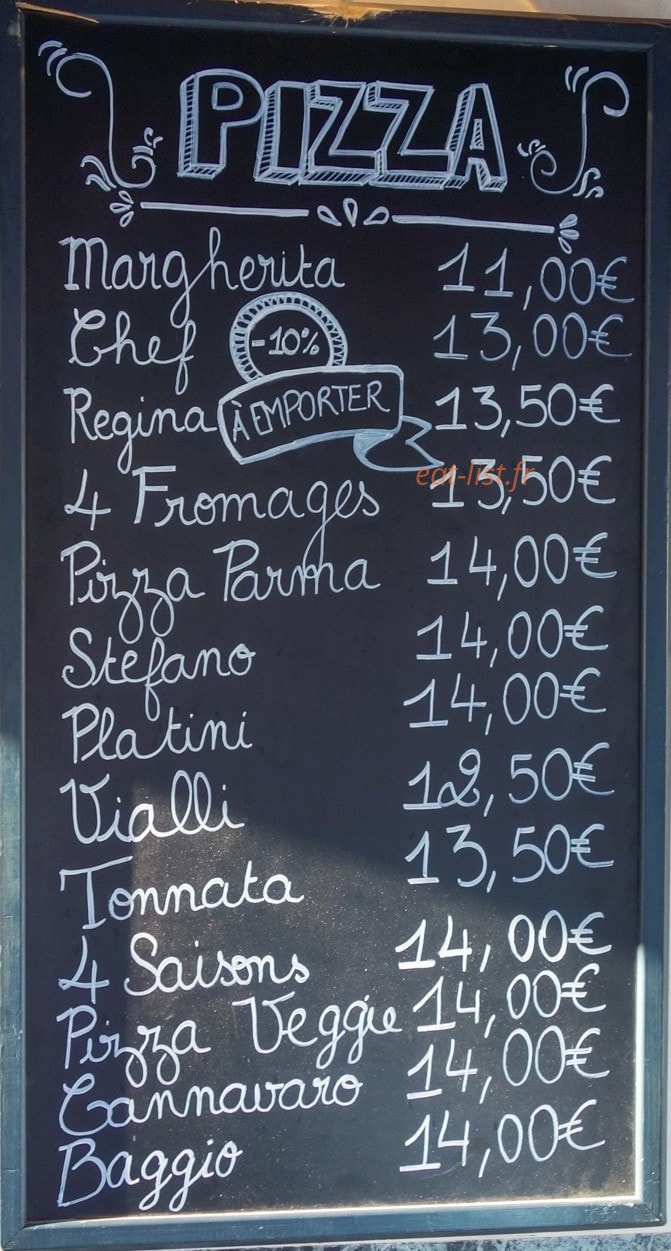 PIZZA
Margherita 11,00€
Chef 13,00€
-10%
À EMPORTER
Regina 13,50€
4 Fromages 13,50€
eat-list.fr
Pizza Parma 14,00€
Stefano 14,00€
Platini 14,00€
Vialli 12,50€
Tonnata 13,50€
4 Saisons 14,00€
Pizza Veggie 14,00€
Cannavaro 14,00€
Baggio 14,00€